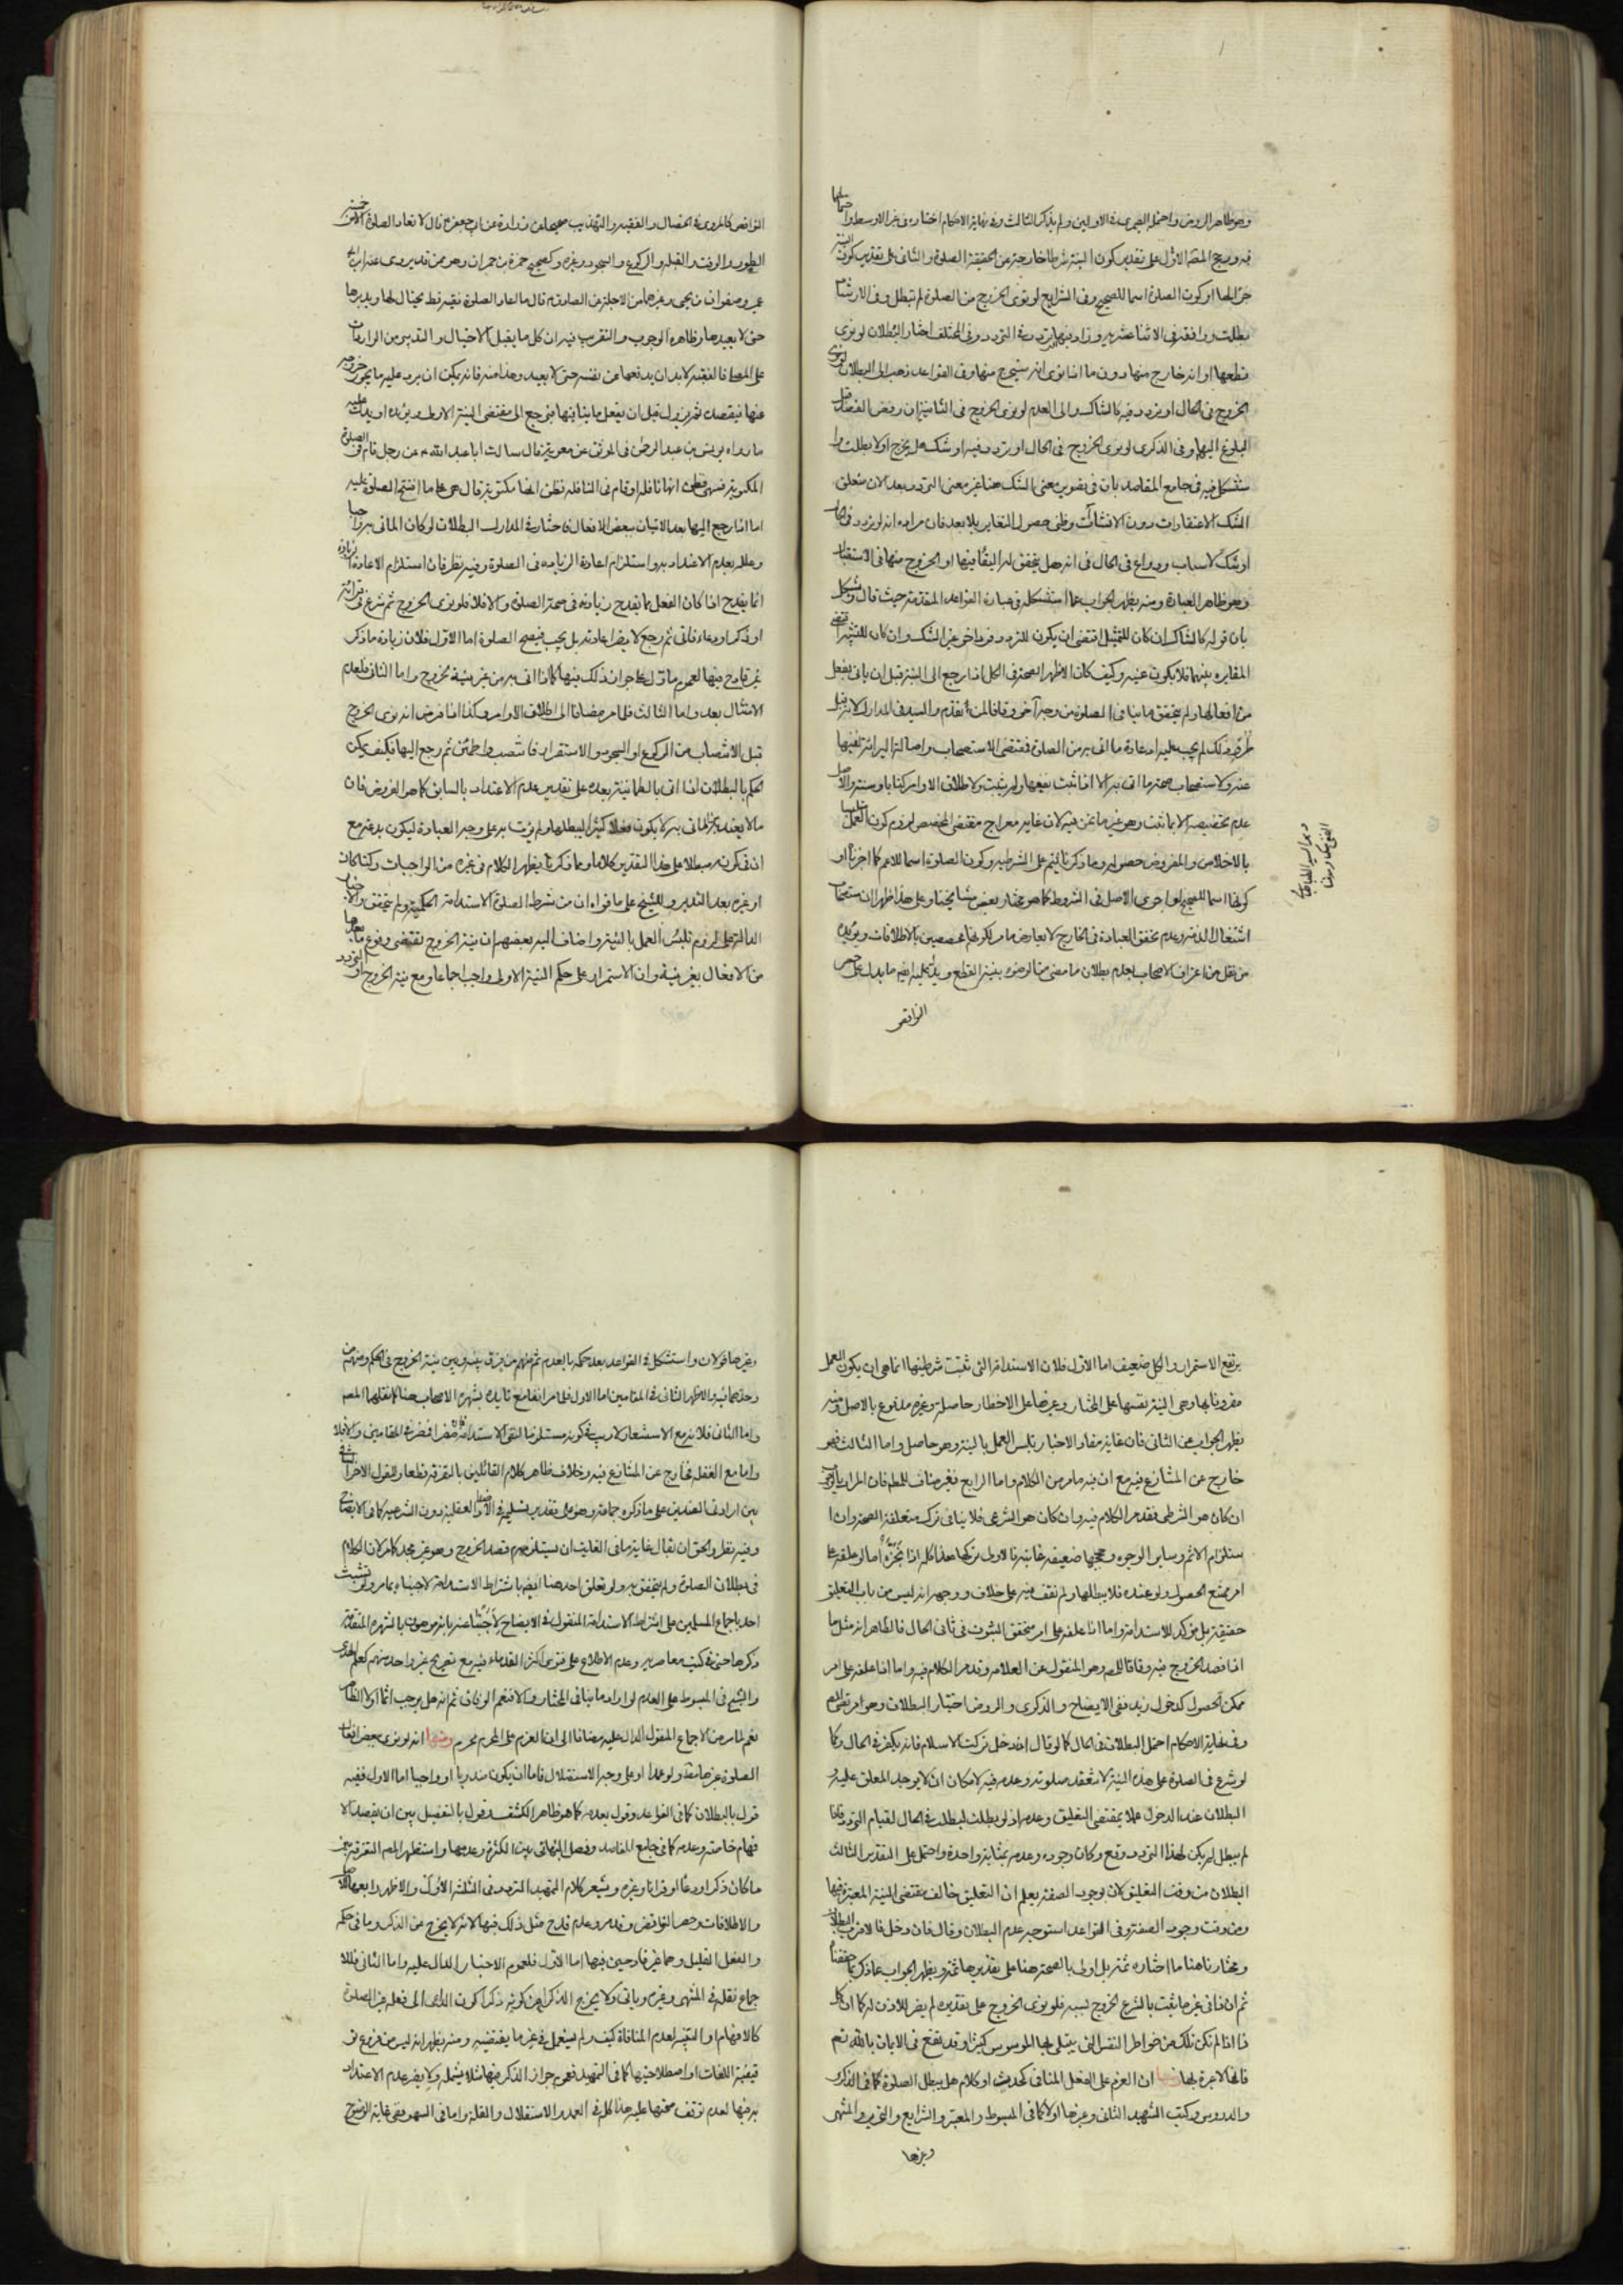 وهو ظاهر الروض واحتمله الصيمري في الاولين ولم يذكر الثالث وفي نهاية الاحكام اختاره في غير الاوسط واحتمالها
فيه ورجح المص الاول على تقدير كون النية شرطا خارجة عن حقيقة الصلوة والثاني على تقدير كون النية
جزءا لها او كون الصلوة اسما للصحيح وفي الشرايع لو نوى الخروج من الصلوة لم تبطل وفي الارشاد
بطلت ووافقه في الاثنا عشريه وزاد فيها التردد وفي المختلف اختار البطلان لو نوى
قطعها او انه خارج منها دون ما اذا نوى انه سيخرج منها وفي القواعد ذهب الى البطلان لو نوى
الخروج في الحال او تردد فيه كالشاك والى العدم لو نوى الخروج في الثانية ان رفض القصد قبل
البلوغ اليها وفي الذكرى لو نوى الخروج في الحال او تردد فيه او شك هل يخرج اولا بطلت
استشكل فيه في جامع المقاصد بان في تصوير معنى الشك هنا غير معنى التردد بعد لان متعلق
الشك الاعتقادات دون الانشائات وظني حصول التغاير بلا بعد فان مراده انه لو تردد في
او شك لاسباب ودواع في الحال في انه هل يتحقق له البقاء فيها او الخروج منها في الاستقبال
وهو ظاهر العبارة ومنه يظهر الجواب عما استشكله في عبارة القواعد المتقدمة حيث قال
بان قوله كالشاك ان كان للتمثيل اقتضى ان يكون للتردد فرد اخر غير الشك وان كان للتشبيه اقتضى
المغايرة بينهما فلا يكون عينه وكيف كان الاظهر الصحة في الكل اذا رجع الى النية قبل ان ياتي بفعل
من افعالها ولم يتحقق ما ينافي الصلوة من وجه آخر وفاقا لمن تقدم والسيد في المدارك لانه قبل
طرو ذلك لم يجب عليه اعادة ما اتى به من الصلوة فمقتضى الاستصحاب واصالة البرائة نفيها
عنه ولاستصحاب صحة ما اتى به الا اذا ثبت رفعها ولم يثبت ولاطلاق الاوامر كتابا وسنة والاصل
عدم تخصيصه الا بما ثبت وهو غير ما نحن فيه لان غاية معراج مقتضى المخصص لزوم كون العمل
بالاخلاص والمفروض حصوله وما ذكرنا يتم على الشرطية وكون الصلوة اسما للاعم كما اخترنا او
كونها اسما للصحيح لو اجرى الاصل في الشروط كما هو مختار بعض مشايخنا وعلى هذا ظهر ان استصحاب
اشتغال الذمة وعدم تحقق العبادة في الخارج لا يعارض ما مر لكونها مخصصين بالاطلاقات ويؤيده
من نقل من اعتراف الاصحاب بعدم بطلان ما مضى من الوضوء بنية القطع ويدل عليه ايضا ما يدل على حصر
النواقض
النواقض كالمروي في الخصال والفقيه والتهذيب صحيحا عن زرارة عن ابي جعفر ع قال لا تعاد الصلوة الا من خمسة
الطهور والوقت والقبلة والركوع والسجود وغيره وكصحيح حمزة بن حمران وهو ممن قد يروي عنه ابن ابي
عمير وصفوان بن يحيى وغيرهما من الاجلة عن الصادق ع قال ما اعاد الصلوة فقيه قط يحتال لها ويدبرها
حتى لا يعيدها وظاهره الوجوب والتقريب فيه ان كل ما يقبل الاحتيال والتدبير من الواردات
على المصلي فالفقيه لابد ان يدفعها عن نفسه حتى لا يعيد وهذا منه فانه يمكن ان يرد عليه ما يجوز خروجه
عنها فيقصده ثم يزول قبل ان يفعل ما ينافيها فيرجع الى مقتضى النية الاولى ويؤيده او يدل عليه
ما رواه يونس بن عبد الرحمن في الموثق عن معوية قال سالت ابا عبد الله ع عن رجل قام في الصلوة
المكتوبة فسهى فظن انها نافلة او قام في النافلة فظن انها مكتوبة قال هي على ما افتتح الصلوة عليه
اما اذا رجع اليها بعد الاتيان ببعض الافعال فاختار في المدارك البطلان لو كان الماتي به واجبا
وعلله بعدم الاعتداد به واستلزام اعادته الزيادة في الصلوة وفيه نظر فان استلزام الاعادة الزيادة
انما يقدح اذا كان الفعل مما يقدح زيادته في صحة الصلوة والا فلا فلو نوى الخروج ثم شرع في قرائة
او ذكر او دعاء فاتى ثم رجع لا يضر اعادته بل يجب فيصح الصلوة اما الاول فلان زيادة ما ذكر
غير قادح فيها لعموم ما دل على جواز ذلك فيها كما اذا اتى به من غير نية خروج واما الثاني فلعدم
الامتثال بعد واما الثالث فلما مر مضافا الى اطلاق الاوامر وكذا اذا فرض انه نوى الخروج
قبل الانتصاب من الركوع او السجود والاستقرار فانتصب واطمئن ثم رجع اليها فكيف يمكن
الحكم بالبطلان اذا اتى بالطمانينة بعده على تقدير عدم الاعتداد بالسابق كما هو المفروض فان
ما لا يعتد به الماتي به لا يكون فعلا كثيرا ليبطلها ولم يؤت به على وجه العبادة ليكون بدعة مع
ان في كونه مبطلا على هذا التقدير كلاما ومما ذكرنا يظهر الكلام في غيره من الواجبات ركنا كان
او غيره بعد التدبر وللشيخ على ما قواه ان من شرط الصلوة الاستدامة الحكمية ولم يتحقق والاخبار
الدالة على لزوم تلبس العمل بالنية واضاف اليه بعضهم ان نية الخروج تقتضي وقوع ما بعدها
من الافعال بغير نية وان الاستمرار على حكم النية الاولى واجب اجماعا ومع نية الخروج او التردد
يرتفع الاستمرار والكل ضعيف اما الاول فلان الاستدامة التي ثبتت شرطيتها انما هي ان يكون العمل
مقرونا بها وهي النية نفسها على المختار وغيرها على الاخطار حاصلة وغيره مدفوع بالاصل ومنه
يظهر الجواب عن الثاني فان غاية مفاد الاخبار تلبس العمل بالنية وهو حاصل واما الثالث فهو
خارج عن المتنازع فيه مع ان فيه ما مر من الكلام واما الرابع فغير مناف للمطلوب فان المراد بالوجوب
ان كان هو الشرطي فقد مر الكلام فيه وان كان هو الشرعي فلا ينافي تركه متعلقه الصحة وان
استلزم الاثم وساير الوجوه وحججها ضعيفة غايته فالاولى تركها هذا كله اذا نجزه اما لو علقه على
امر ممتنع الحصول ولو عنده فلا يبطلها ولم نقف فيه على خلاف ووجهه انه ليس من باب التعليق
حقيقة بل مؤكد للاستدامة واما اذا علقه على امر متحقق الثبوت في ثاني الحال فالظاهر انه مثل ما
اذا قصد الخروج فيه وفاقا للمص وهو المنقول عن العلامة وقد مر الكلام فيه واما اذا علقه على امر
ممكن الحصول كدخول زيد ففي الايضاح والذكرى والروض اختيار البطلان وهو امر نقل المص
وفي نهاية الاحكام احتمل البطلان في الحال كما لو قال ان دخل تركت الاسلام فانه يكفر في الحال وكما
لو شرع في الصلوة على هذه النية لا تنعقد صلوته وعدمه فيه لامكان ان لا يوجد المعلق عليه و
البطلان عند الدخول عملا بمقتضى التعليق وعدمه اذ لو بطلت لبطلت في الحال لقيام التردد فاذا
لم يبطل لم يكن لهذا التردد وقع وكان وجوده وعدمه بمثابة واحدة واحتمل على التقدير الثالث
البطلان من وقت التعليق لان بوجود الصفة يعلم ان التعليق خالف مقتضى النية المعتبرة فيها
ومن وقت وجود الصفة وفي القواعد استوجه عدم البطلان وقال فان دخل فالاقرب البطلان
ومختارنا هنا ما اختاره ثمة بل اولى بالصحة هنا على تقديرها ثمة ويظهر الجواب عما ذكر مما حققنا
ثم ان في غير ما يثبت بالشرع الخروج بسببه فلو نوى الخروج على تقديره لم يضر للاذن له كما ان كل
ذا اذا لم تكن تلك من خواطر النفس التي يبتلي بها الموسوس كثيرا وقد تقع في الايمان بالله تعم
فانها لا عبرة بها ومنها ان العزم على الفعل المنافي كحدث او كلام هل يبطل الصلوة كما في الذكرى
والدروس وكتب الشهيد الثاني وغيرها اولا كما في المبسوط والمعتبر والشرايع والتحرير والمنتهى
وغيرها
وغيرها قولان واستشكل في القواعد بعد حكمه بالعدم ثم منهم من فرق بينه وبين نية الخروج في الحكم ومنهم من
وحدهما فيه والاظهر الثاني في المقامين اما الاول فلما مر انفا مع تايده بشهرة الاصحاب هنا كما نقلها المص
واما الثاني فلانه مع الاستشعار لا ريب في كونه مستلزما لنفي الاستدامة فيضر اذا ضر في المقامين والا فلا
واما مع الغفلة فخارج عن المتنازع فيه وخلاف ظاهر كلام القائلين بالتفرقة قطعا والقول الاخر
بين ارادتي الضدين على ما ذكره جماعة وهو على تقدير تسليمه في الاضداد العقلية دون الشرعية كما في الايضاح
وفيه نظر والحق ان يقال غاية ما في الغايت ان يستلزم قصد الخروج وهو غير مجد كما مر لان الكلام
في بطلان الصلوة ولم يتحقق به ولو تعلق احد هنا ايضا باشتراط الاستدامة لاجبناه بما مر ولو تشبث
احد باجماع المسلمين على اشتراط الاستدامة المنقول في الايضاح لاجبنا عنه بانه موهون بالشهرة المتقدمة
ذكرها حتى في كتب معاصريه وعدم الاطلاع على فتوى اكثر القدماء فيه مع تصريح غير واحد منهم كعلم الهدى
والشيخ في المبسوط على العدم لو اراد ما ينافي المختار والا فنعم الوفاق ثم انه هل يوجب اثما اولا الظاهر
نعم لما مر من الاجماع المنقول الدال عليه مضافا الى ان العزم على المحرم محرم ومنها انه لو نوى ببعض افعال
الصلوة غيرها منه ولو عمدا او على وجه الاستقلال فاما ان يكون مندوبا او واجبا اما الاول ففيه
قول بالبطلان كما في القواعد وقول بعدمه كما هو ظاهر الكشف وقول بالتفصيل بين ان يقصد الا
فهام خاصة وعدمه كما في جامع المقاصد وفصل البهائي بين الكثرة وعدمها واستظهر المص التفرقة بين
ما كان ذكرا او دعاء او قرانا وغيره ويشعر كلام الشهيد التردد في الثلثة الاول والاظهر رابعها للاصل
والاطلاقات وحصر النواقض وقد مر وعدم قدح مثل ذلك فيها لانه لا يخرج عن الذكر وما في حكمه
والفعل القليل وهما غير قادحين فيها اما الاول فلعموم الاخبار الدال عليه واما الثاني فللا
جماع نقله في المنتهى وغيره وياتي ولا يخرج الذكر عن كونه ذكرا كون الداعي الى فعله غير الصلوة
كالافهام او التنبيه لعدم المنافاة كيف ولم يستعمل في غير ما يقتضيه ومنه يظهر انه ليس من فروع تو
قيفية اللغات او اصطلاحيتها كما في التمهيد فعموم جواز الذكر فيها مثلا يشمله ولا يضر عدم الاعتداد
به فيها لعدم توقف صحتها عليه هذا كله في العمد والاستقلال والقلة واما في السهو ففي غاية الوضوح